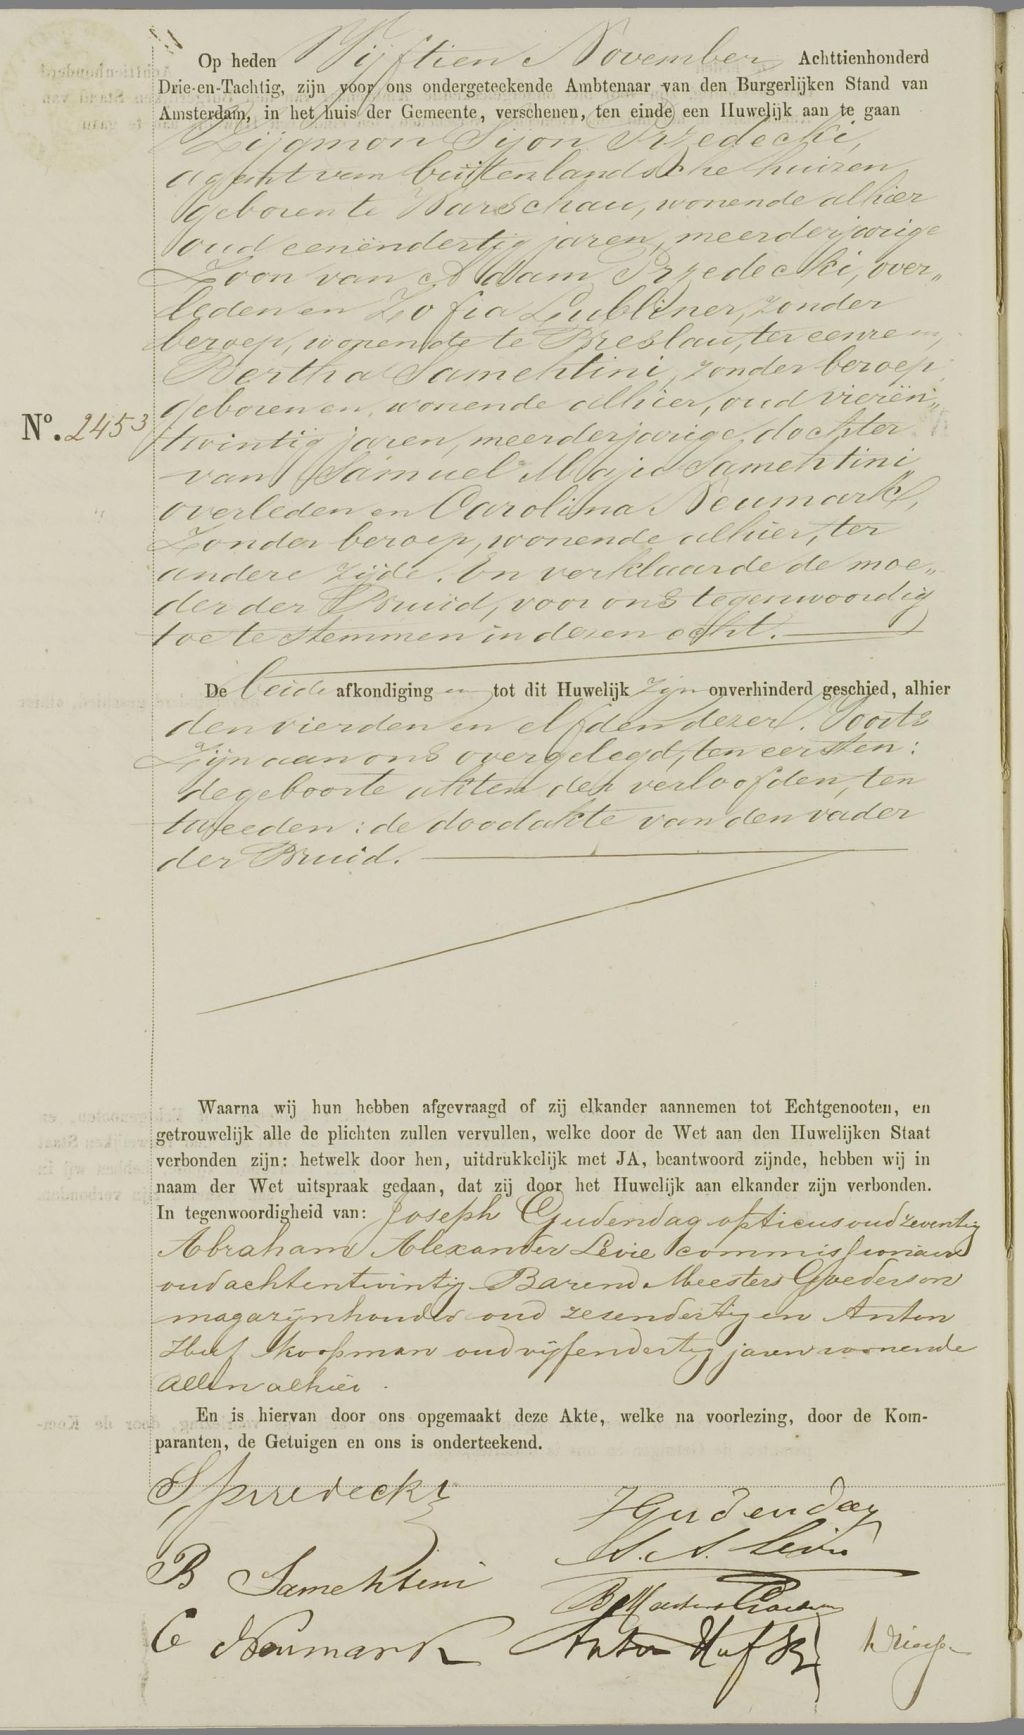 Op heden Vijftien November Achttienhonderd
Drie-en-Tachtig, zijn voor ons ondergeteekende Ambtenaar van den Burgerlijken Stand van
Amsterdam, in het huis der Gemeente, verschenen, ten einde een Huwelijk aan te gaan
Zijgmon Syon Przedecki,
agent van buitenlandsche huizen
geboren te Warschau, wonende alhier
oud eenëndertig jaren, meerderjarige
Zoon van Adam Przedecki, over„
leden en Zofia Lubliner, zonder
beroep, wonende te Breslau, ter eenre en,
Bertha Samehtini, zonder beroep,
geboren en wonende alhier, oud vierën„
No. 2453
twintig jaren, meerderjarige dochter
van Samuel Majo Samehtini,
overleden en Carolina Neumark,
Zonder beroep, wonende alhier, ter
andere zijde. En verklaarde de moe„
der der Bruid, voor ons tegenwoordig
toe te stemmen in dezen echt.
De beide afkondiging en tot dit Huwelijk zijn onverhinderd geschied, alhier
den vierden en elfden dezer. Voorts
Zijn aan ons overgelegd, ten eersten:
de geboorte akten der verloofden, ten
tweeden: de doodakte van den vader
der Bruid.
Waarna wij hun hebben afgevraagd of zij elkander aannemen tot Echtgenooten, en
getrouwelijk alle de plichten zullen vervullen, welke door de Wet aan den Huwelijken Staat
verbonden zijn: hetwelk door hen, uitdrukkelijk met JA, beantwoord zijnde, hebben wij in
naam der Wet uitspraak gedaan, dat zij door het Huwelijk aan elkander zijn verbonden.
In tegenwoordigheid van: Joseph Gudendag opticus oud zeventig
Abraham Alexander Levie commissionair
oud achtentwintig Barend Meesters Goederson
magazijnhouder oud zesendertig en Anton
Huf koopman oud vijfendertig jaren wonende
allen alhier.
En is hiervan door ons opgemaakt deze Akte, welke na voorlezing, door de Kom-
paranten, de Getuigen en ons is onderteekend.
S Przedecki
J Gudendag
A. A. Levie
B Samehtini
B Meesters
C Neumark
Anton Huf